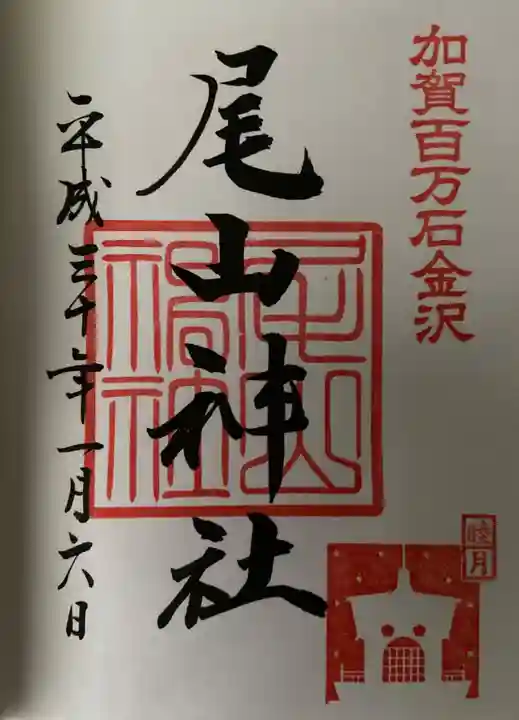 加賀百万石金沢
睦月
尾山神社
尾山神社
平成三十年一月六日